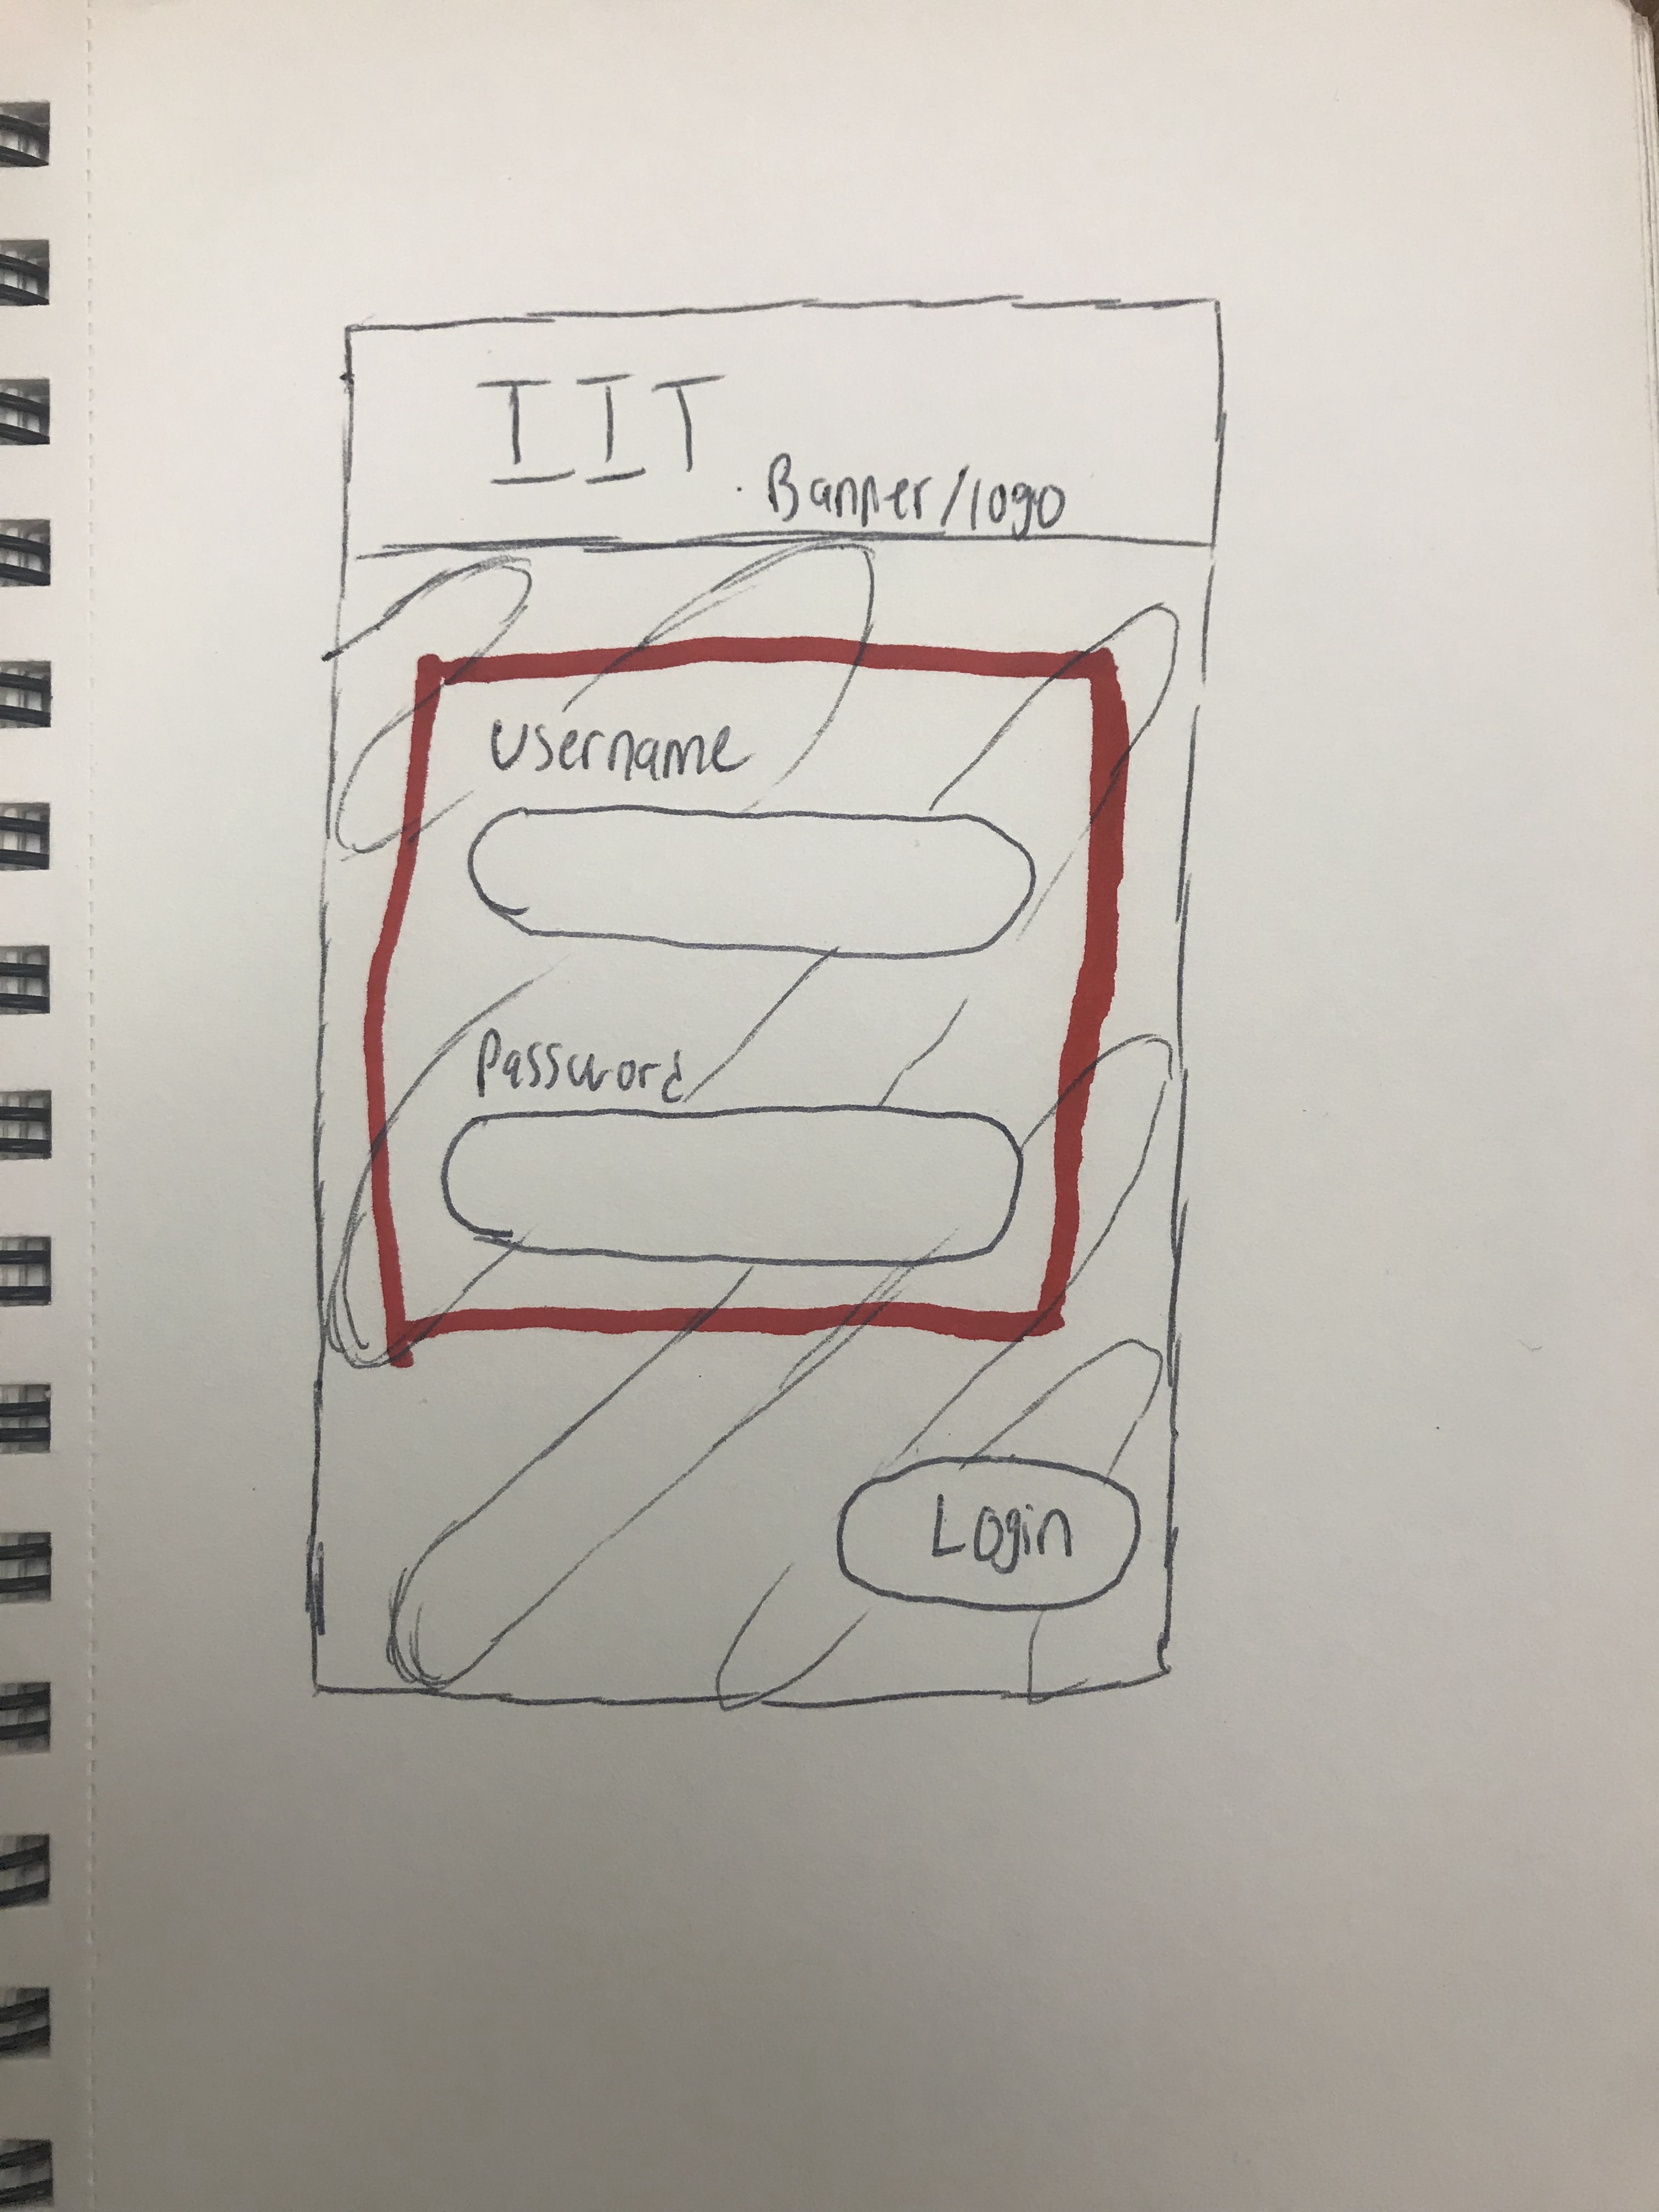 IIT
Banner/logo
Username
Password
Login